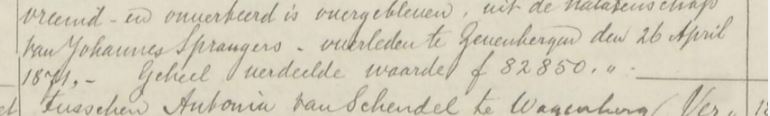 vreemd - en onverteerd is overgebleven, uit de nalatenschap
van Johannes Sprangers - overleden te Zevenbergen den 26 April
1871, - Geheel verdeelde waarde f 82850, „ -
Tusschen Antonia van Schendel te Wagenberg (Ver